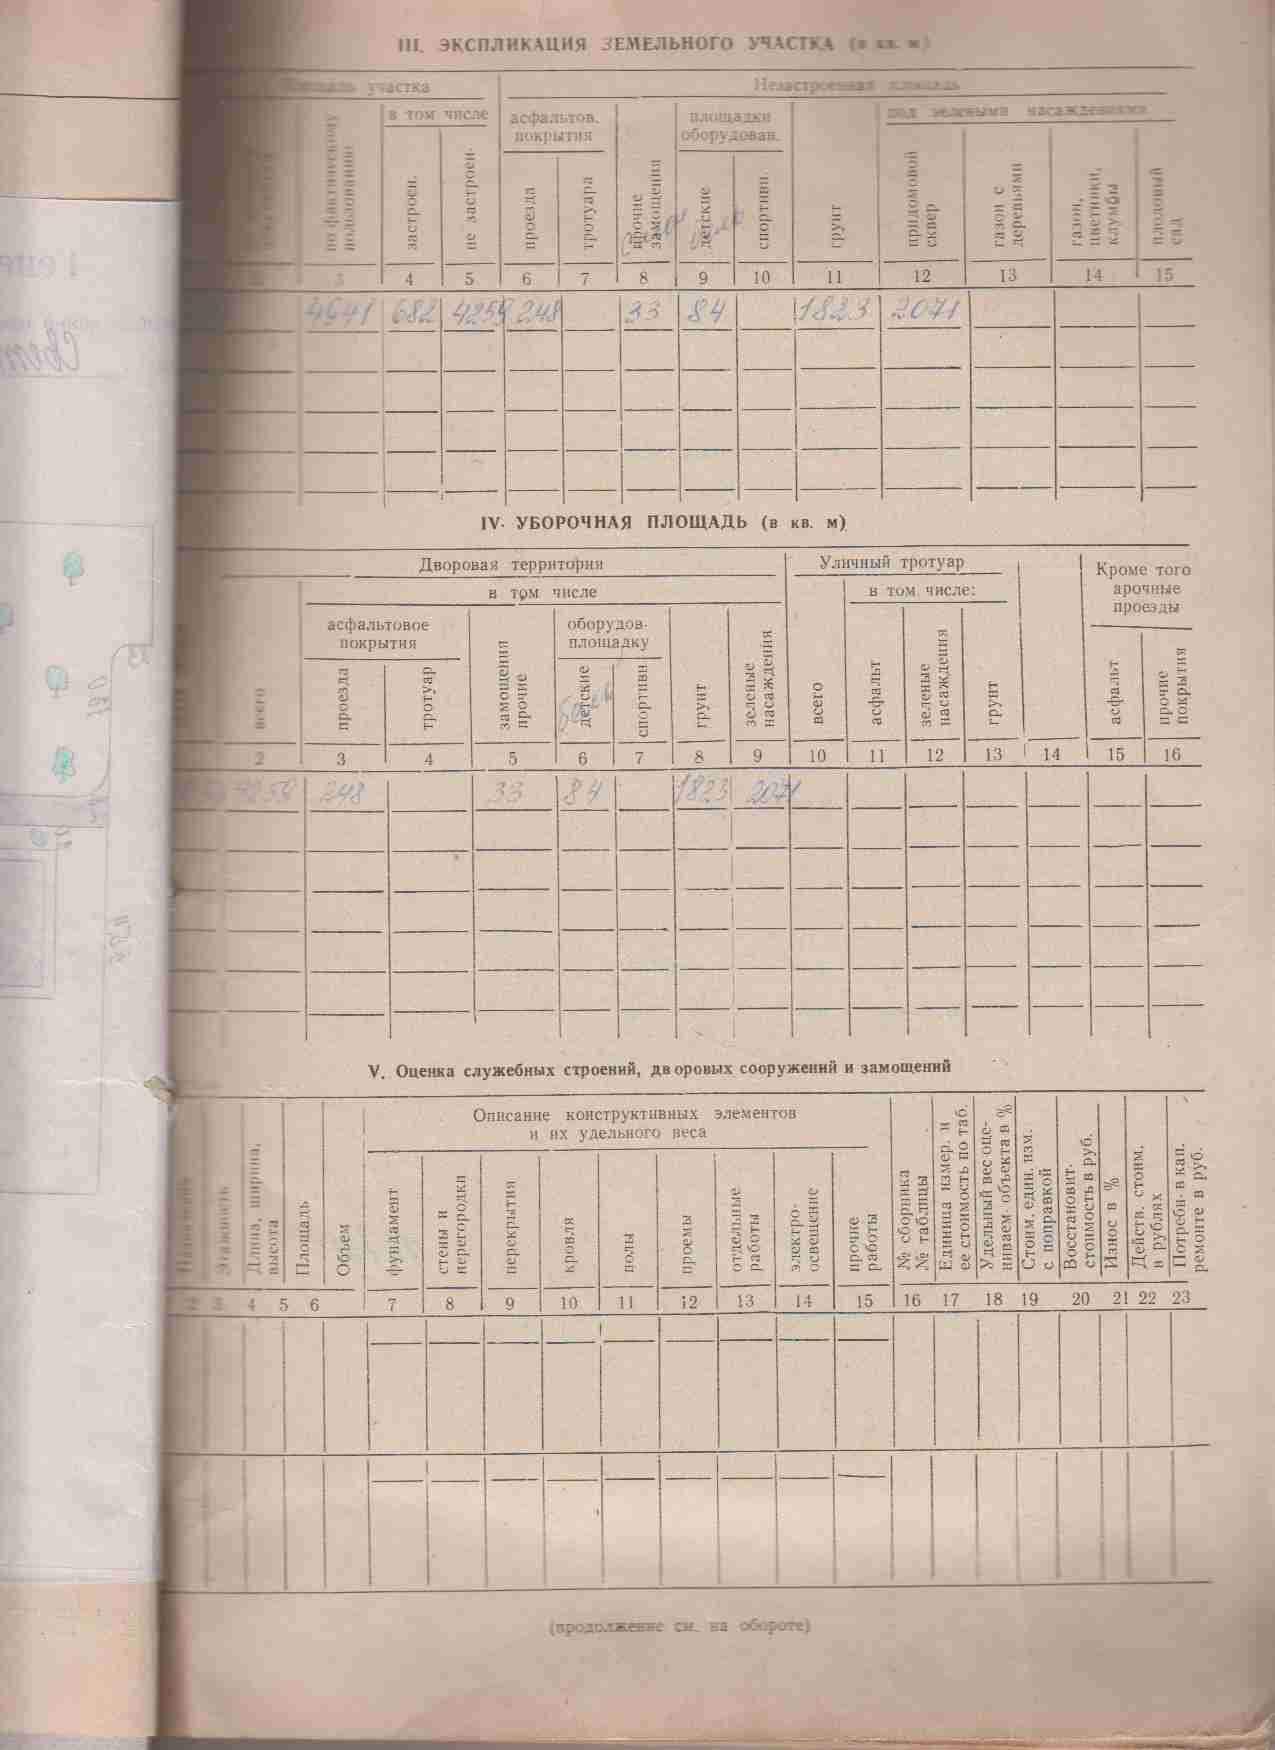 III. ЭКСПЛИКАЦИЯ ЗЕМЕЛЬНОГО УЧАСТКА (в кв. м)
Площадь участка
Незастроенная площадь
в том числе
асфальтов. покрытия
площадки оборудован.
под зелеными насаждениями
по фактическому пользованию
застроен.
не застроен.
проезда
тротуара
прочие замощения
детские
спортивн.
грунт
придомовой сквер
газон с деревьями
газон, цветники, клумбы
плодовый сад
3 4 5 6 7 8 9 10 11 12 13 14 15
4941 682 4259 248 33 84 1823 2071
IV. УБОРОЧНАЯ ПЛОЩАДЬ (в кв. м)
Дворовая территория
Уличный тротуар
Кроме того арочные проезды
в том числе
в том числе:
асфальтовое покрытия
оборудов. площадку
всего
проезда
тротуар
замощения прочие
детские
спортивн
грунт
зеленые насаждения
всего
асфальт
зеленые насаждения
грунт
асфальт
прочие покрытия
2 3 4 5 6 7 8 9 10 11 12 13 14 15 16
4259 248 33 84 1823 2071
V. Оценка служебных строений, дворовых сооружений и замощений
Описание конструктивных элементов
и их удельного веса
Назначение
Этажность
Длина, ширина, высота
Площадь
Объем
фундамент
стены и перегородки
перекрытия
кровля
полы
проемы
отдельные работы
электро-освещение
прочие работы
№ сборника № таблицы
Единица измер. и ее стоимость по таб.
Удельный вес оце-ниваем. объекта в %
Стоим. един. изм. с поправкой
Восстановит. стоимость в руб.
Износ в %
Действ. стоим. в рублях
Потребн. в кап. ремонте в руб.
2 3 4 5 6 7 8 9 10 11 12 13 14 15 16 17 18 19 20 21 22 23
(продолжение см. на обороте)